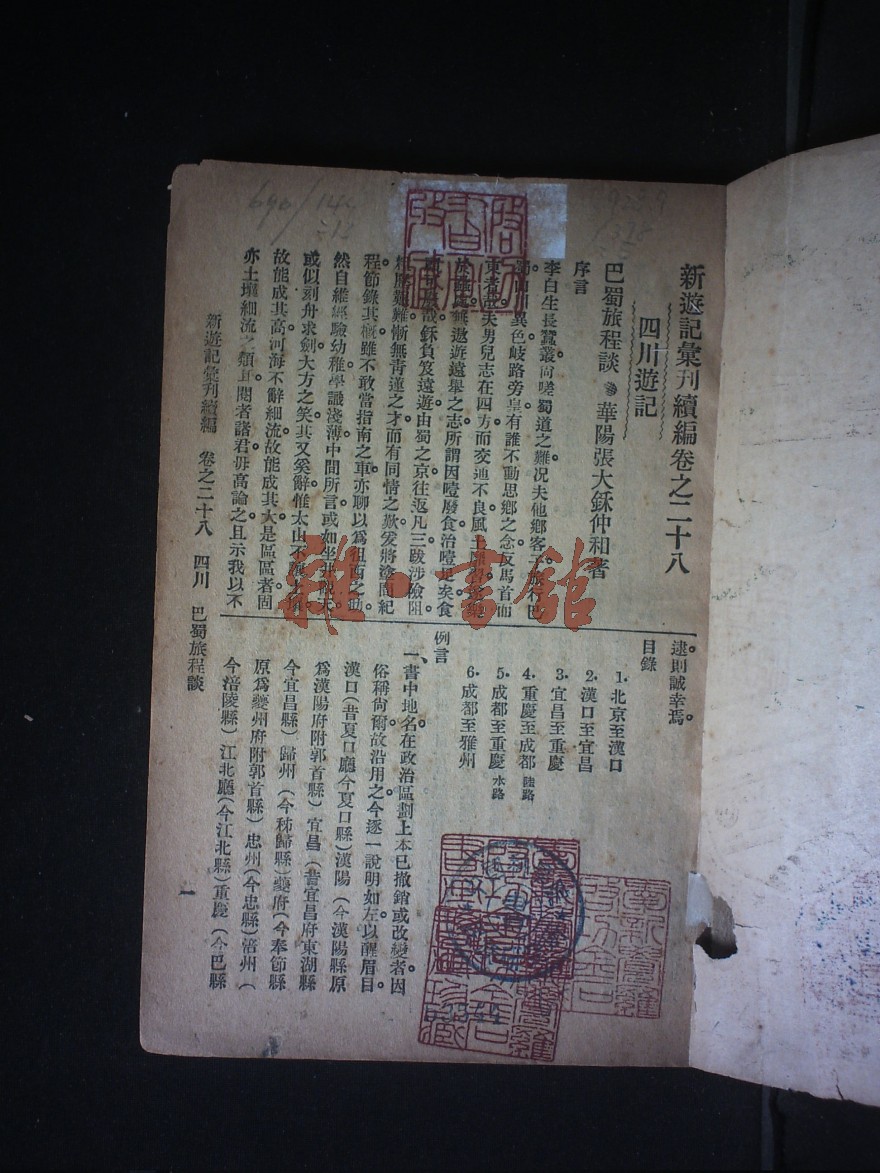 新遊記彙刊續編卷之二十八
四川遊記
巴蜀旅程談 華陽張大鉌仲和著
序言
李白生長蠶叢尚嗟蜀道之難。況夫他鄉客子旅行巴
山川異色岐路旁皇有誰不動思鄉之念反馬首而
東者夫男兒志在四方而交通不良風土
遨遊遠舉之志所謂因噎廢食治噎
鉌負笈遠遊由蜀之京往返凡三跋涉險阻
難慚無青蓮之才而有同情之歎爰將途間紀
程節錄其概雖不敢當指南之車亦聊以爲祖西之助。
然自維經驗幼稚學識淺薄中間所言或如坐井觀天
或似刻舟求劍大方之笑其又奚辭惟太山不
故能成其高河海不辭細流故能成其大是區區者固
亦土壤細流之類耳閱者諸君毋高論之且示我以不
逮則誠幸焉。
目錄
1. 北京至漢口
2. 漢口至宜昌
3. 宜昌至重慶
4. 重慶至成都 陸路
5. 成都至重慶 水路
6. 成都至雅州
例言
一、書中地名在政治區劃上本已撤銷或改變者。因
俗稱尙爾故沿用之今逐一說明如左以醒眉目。
漢口(昔夏口廳今夏口縣)漢陽(今漢陽縣原
爲漢陽府附郭首縣)宜昌(昔宜昌府東湖縣
今宜昌縣)歸州(今秭歸縣)夔府(今奉節縣
原爲夔州府附郭首縣)忠州(今忠縣)涪州(
今涪陵縣)江北廳(今江北縣)重慶(今巴縣
新遊記彙刊續編 卷之二十八 四川 巴蜀旅程談
一
雜·書館